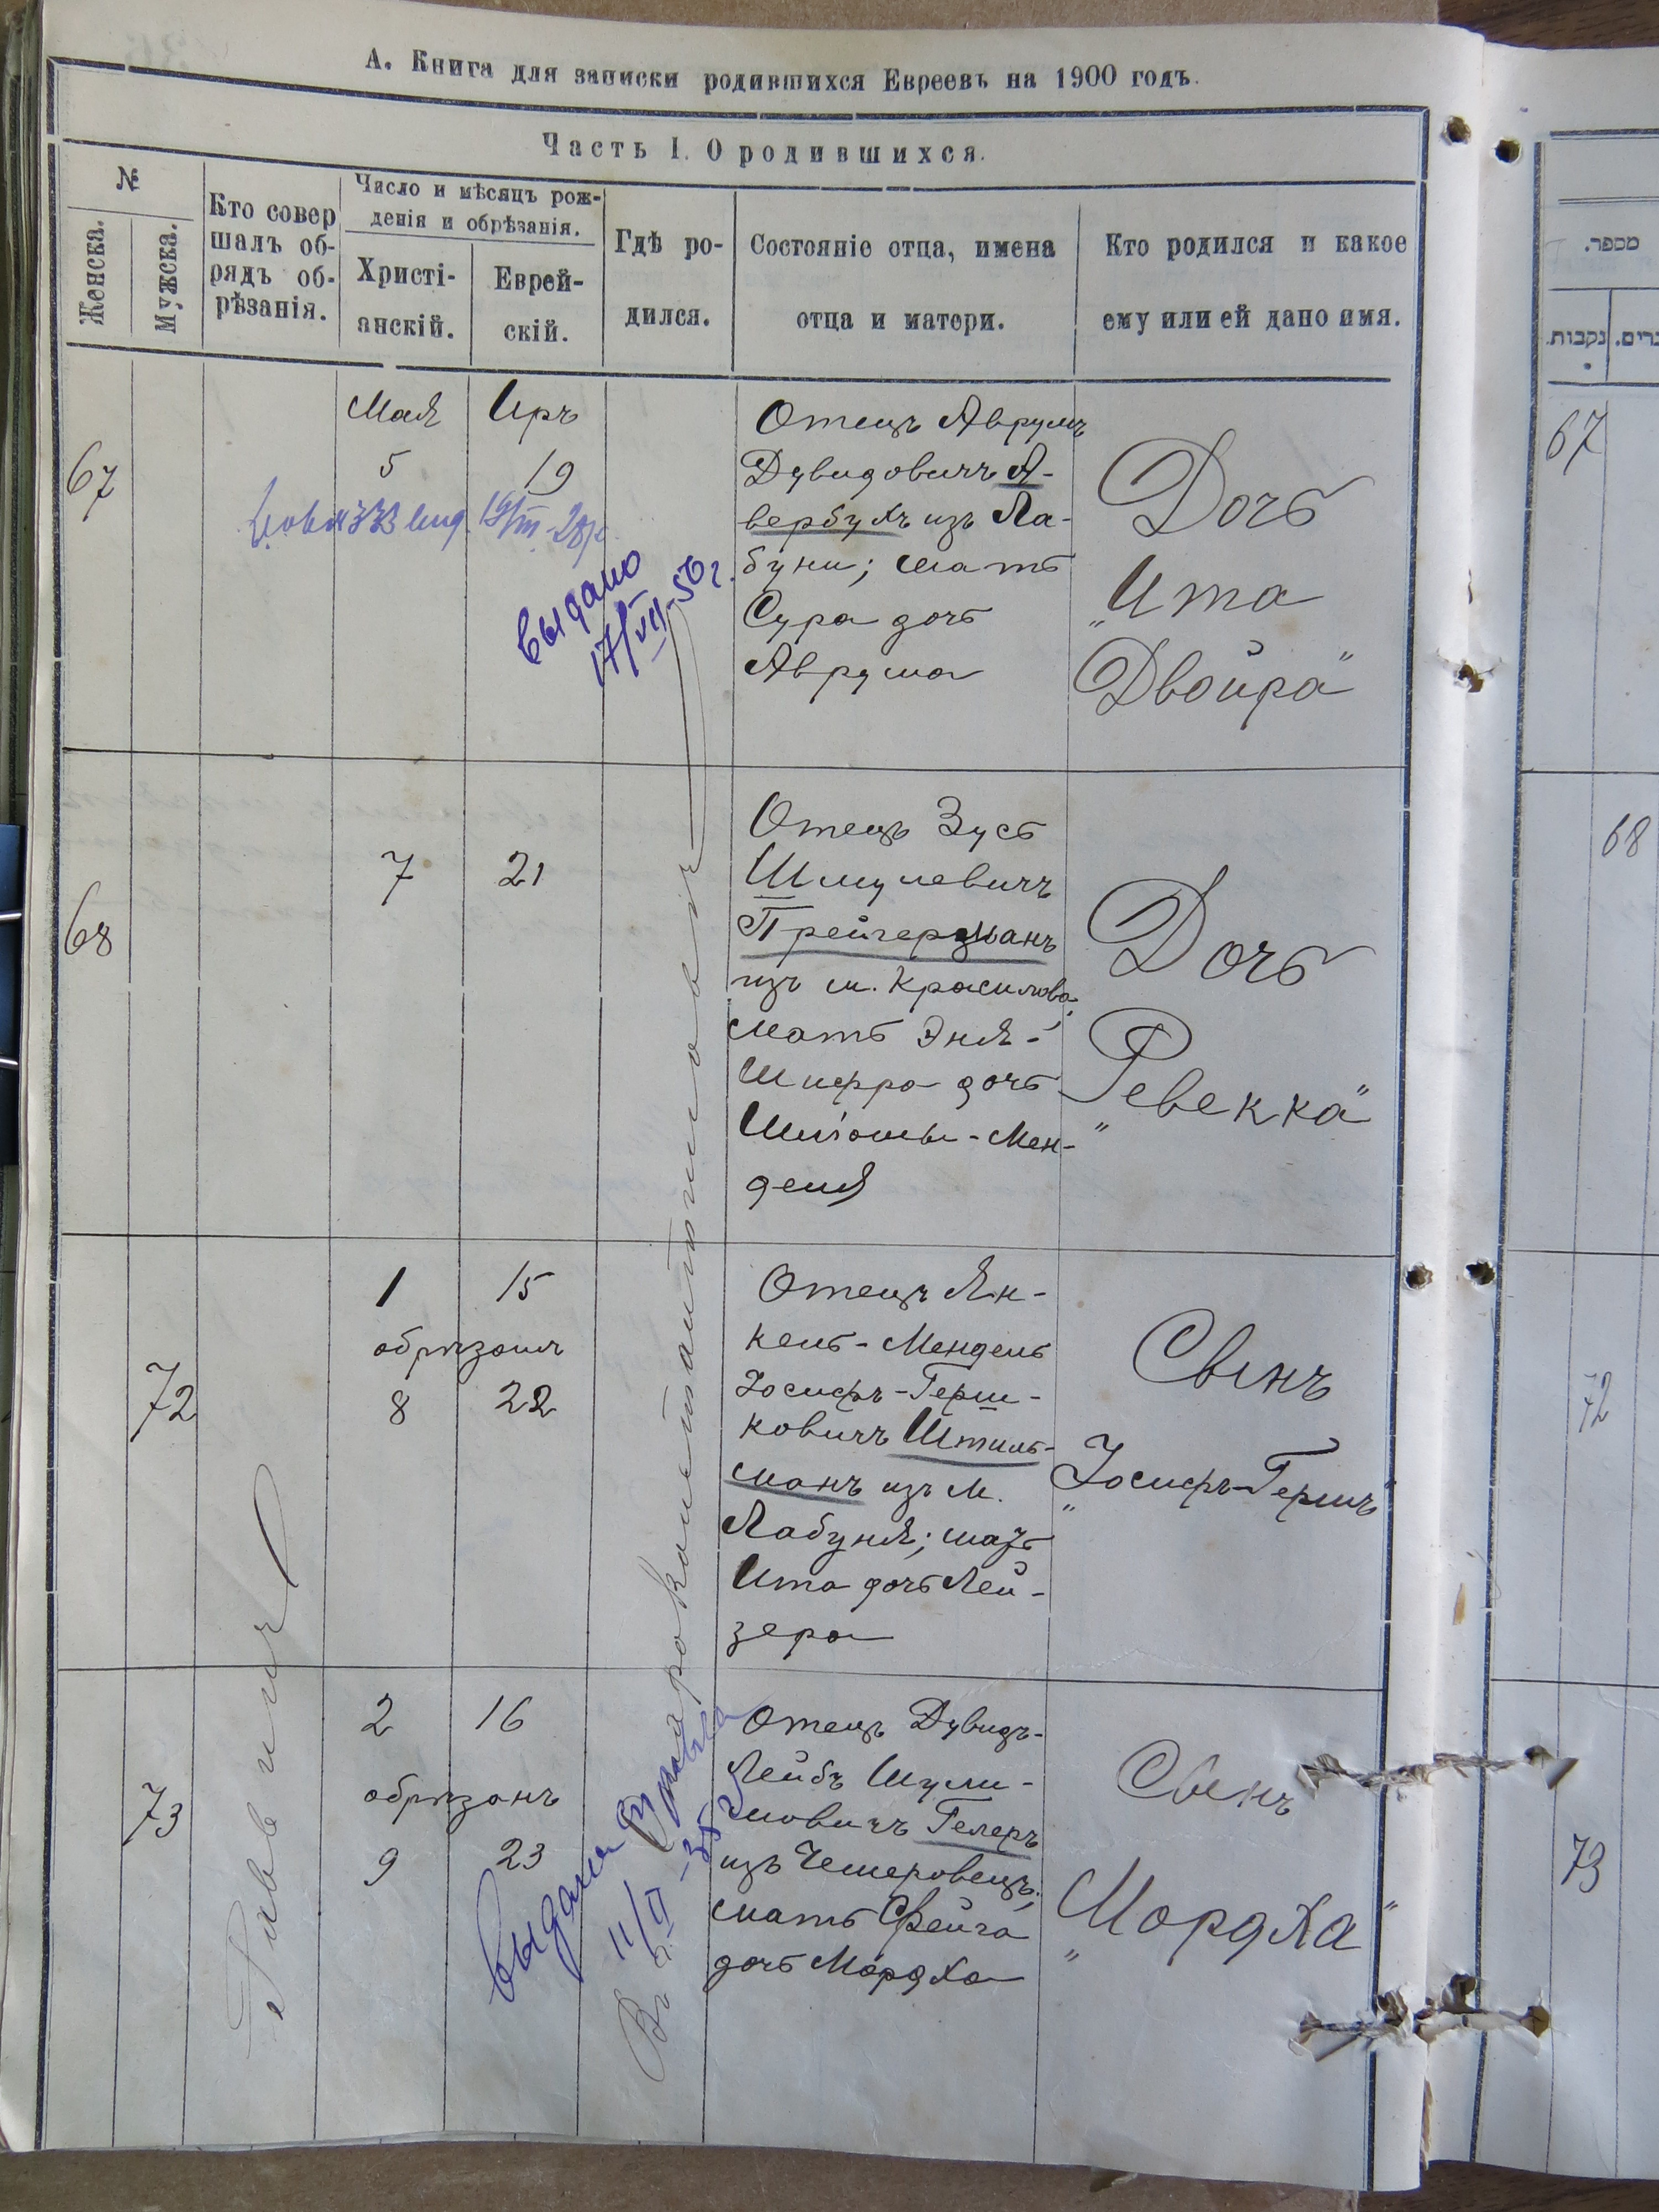 А. Книга для записки родившихся Евреевъ на 1900 годъ.
Часть I. О родившихся.
№
Женска.
Мужска.
Кто совер
шалъ об-
рядъ об-
рѣзанія.
Число и мѣсяцъ рож-
денія и обрѣзанія.
Христі-
анскій.
Еврей-
скій.
Гдѣ ро-
дился.
Состояніе отца, имена
отца и матери.
Кто родился и какое
ему или ей дано имя.
67
Мая
5
Иръ
19
19/III-28г.
выдано
17/VII-56г.
Отецъ Аврумъ
Дувидовичъ А-
вербухъ изъ Ла-
буни; мать
Сура дочь
Аврума
Дочь
„Ита
Двойра"
68
7
21
Отецъ Зусь
Шмулевичъ
Прейгерзманъ
изъ м. Красилова,
мать Эня-
Шифра дочь
Шліомы-Мен-
деля
Дочь
„Ревекка"
72
1
15
обрѣзанъ
8
22
Отецъ Ян-
кель-Мендель
Іосифъ-Герш-
ковичъ Штиль-
манъ изъ м.
Лабуня; мать
Ита дочь Лей-
зера
Сынъ
„Іосифъ-Гершъ"
73
2
16
обрѣзанъ
9
23
Отецъ Дувидъ-
Лейбъ Шули-
мовичъ Гелеръ
изъ Чемеровецъ;
мать Фейга
дочь Мордха
Сынъ
„Мордха"
Раввинъ
Въ м. Староконстантиновъ
выдана справка
11/II-35 г
מספר.
נקבות.
67
68
72
73